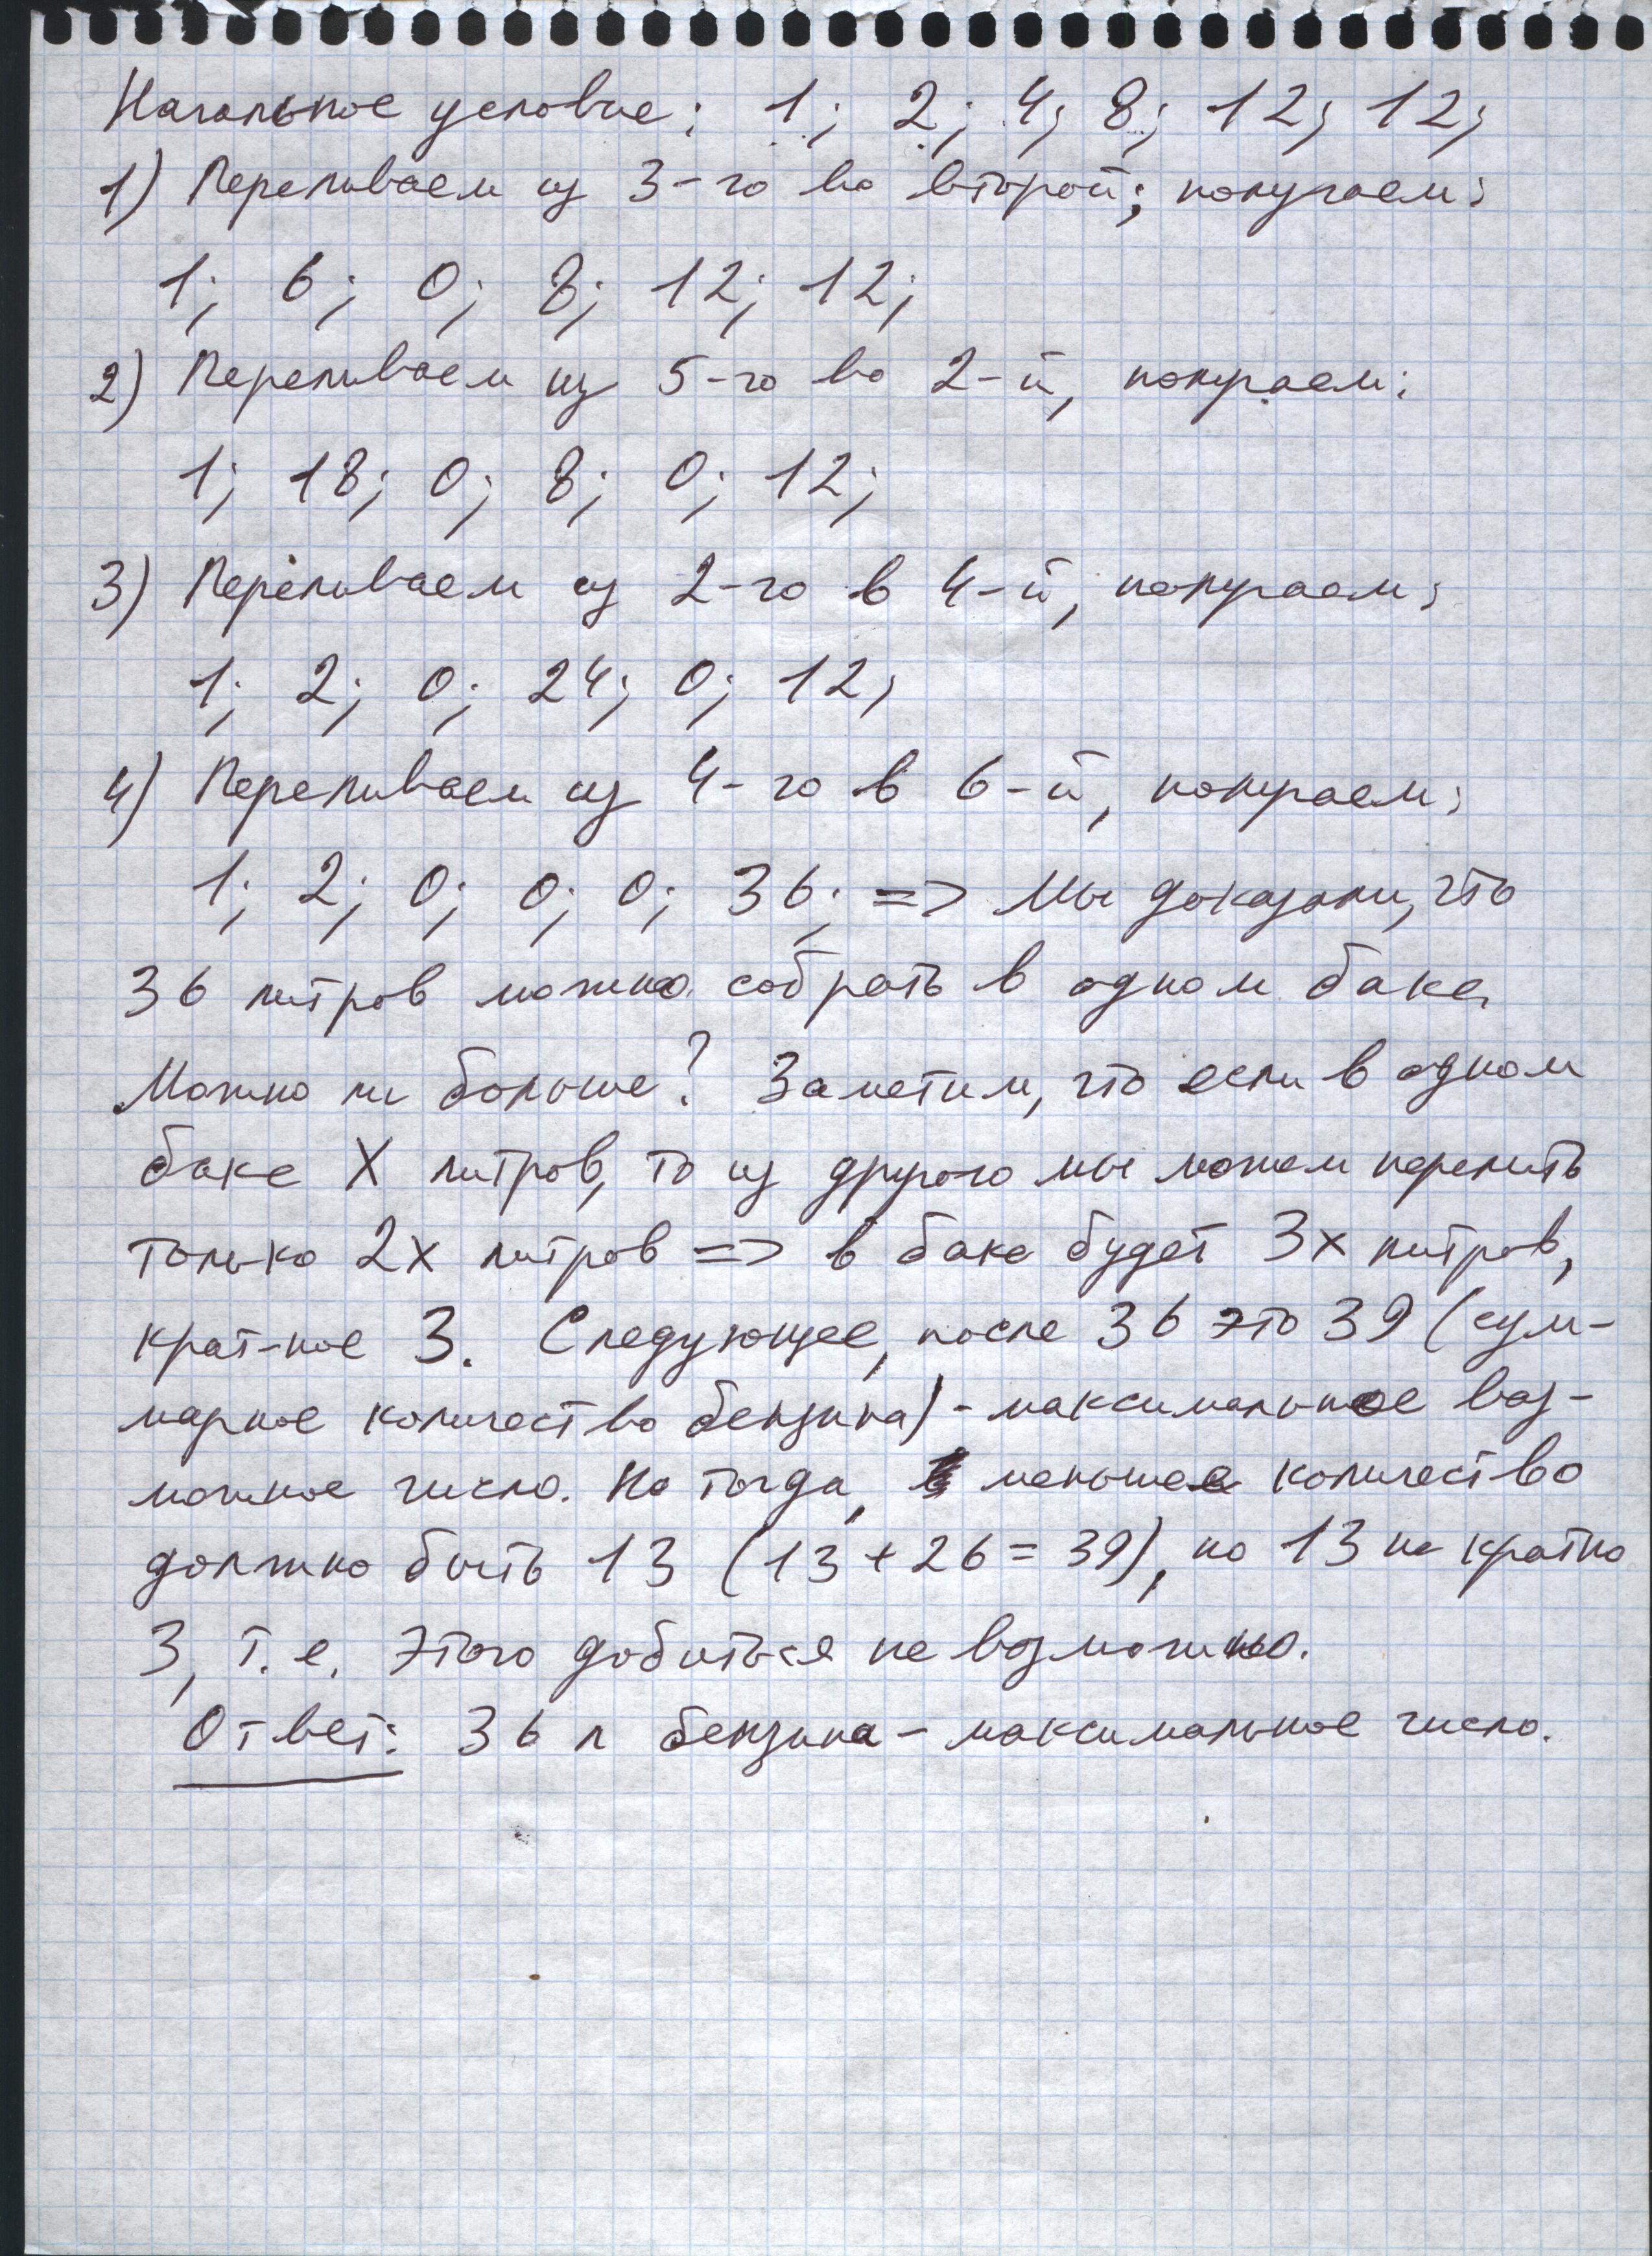 Начальное условие: 1; 2; 4; 8; 12; 12;
1) Переливаем из 3-го во второй; получаем:
1; 6; 0; 8; 12; 12;
2) Переливаем из 5-го во 2-й, получаем:
1; 18; 0; 8; 0; 12;
3) Переливаем из 2-го в 4-й, получаем:
1; 2; 0; 24; 0; 12;
4) Переливаем из 4-го в 6-й, получаем:
1; 2; 0; 0; 0; 36; => Мы доказали, что
36 литров можно собрать в одном баке.
Можно ли больше? Заметим, что если в одном
баке X литров, то из другого мы можем перелить
только 2x литров => в баке будет 3x литров,
крат-ное 3. Следующее, после 36 это 39 (сум-
марное количество бензина) - максимальное воз-
можное число. Но тогда, меньшее количество
должно быть 13 (13 + 26 = 39), но 13 не кратно
3, т.е. этого добиться не возможно.
Ответ: 36 л бензина - максимальное число.